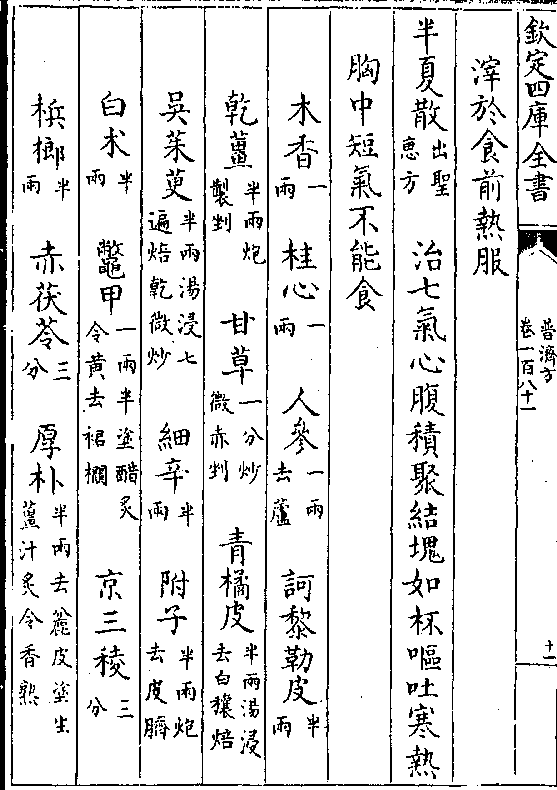 欽定四庫全書
普濟方
卷一百八十一
十一
滓於食前熱服
半夏散出聖惠方 治七氣心腹積聚結塊如杯嘔吐寒熱
胸中短氣不能食
木香一兩 桂心一兩 人參一兩去蘆 訶黎勒皮半兩
乾薑半兩炮製剉 甘草一分炒微赤剉 青橘皮半兩湯浸去白穰焙
吳茱萸半兩湯浸七遍焙乾微炒 細辛半兩 附子半兩炮去皮臍
白朮半兩 鼈甲一兩半塗醋炙令黃去裙襴 京三稜三分
檳榔半兩 赤茯苓三分 厚朴半兩去麄皮塗生薑汁炙令香熟